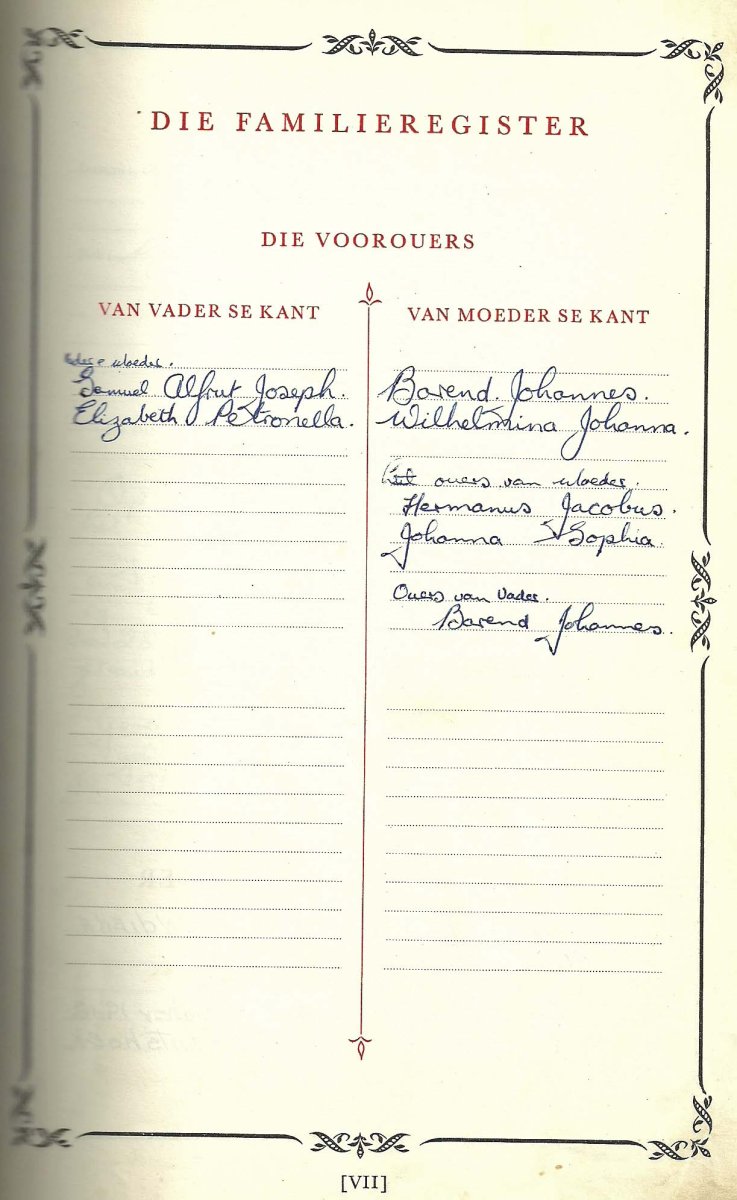 DIE FAMILIEREGISTER
DIE VOOROUERS
VAN VADER SE KANT
Moeder.
Samuel Alfrut Joseph.
Elizabeth Petronella.
VAN MOEDER SE KANT
Barend. Johannes.
Wilhelmina Johanna.
ouers van Moeder.
Hermanus Jacobus.
Johanna Sophia.
Ouers van Vader.
Barend Johannes.
[VII]